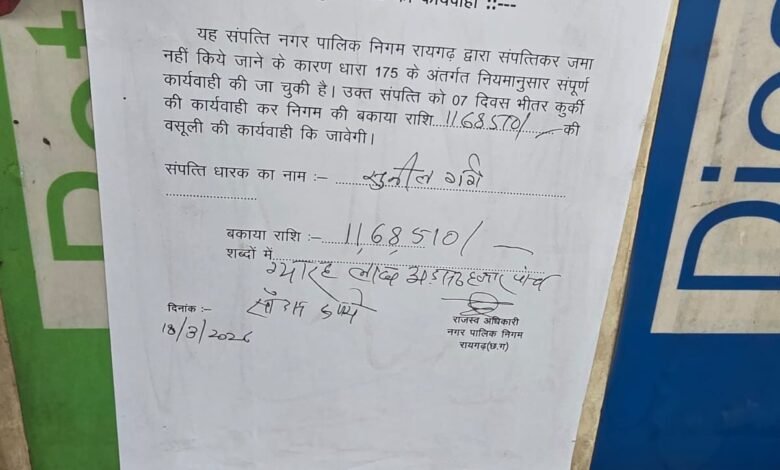 की कार्यवाही ::---
यह संपत्ति नगर पालिक निगम रायगढ़ द्वारा संपत्तिकर जमा
नहीं किये जाने के कारण धारा 175 के अंतर्गत नियमानुसार संपूर्ण
कार्यवाही की जा चुकी है। उक्त संपत्ति को 07 दिवस भीतर कुर्की
की कार्यवाही कर निगम की बकाया राशि 1168510/- की
वसूली की कार्यवाही कि जावेगी।
संपत्ति धारक का नाम :- सुनील गर्ग
बकाया राशि :- 11,68,510/-
शब्दों में
ग्यारह लाख अड़सठ हजार पांच
सौ दस रुपये
दिनांक :-
18/3/2026
राजस्व अधिकारी
नगर पालिक निगम
रायगढ़(छ.ग)